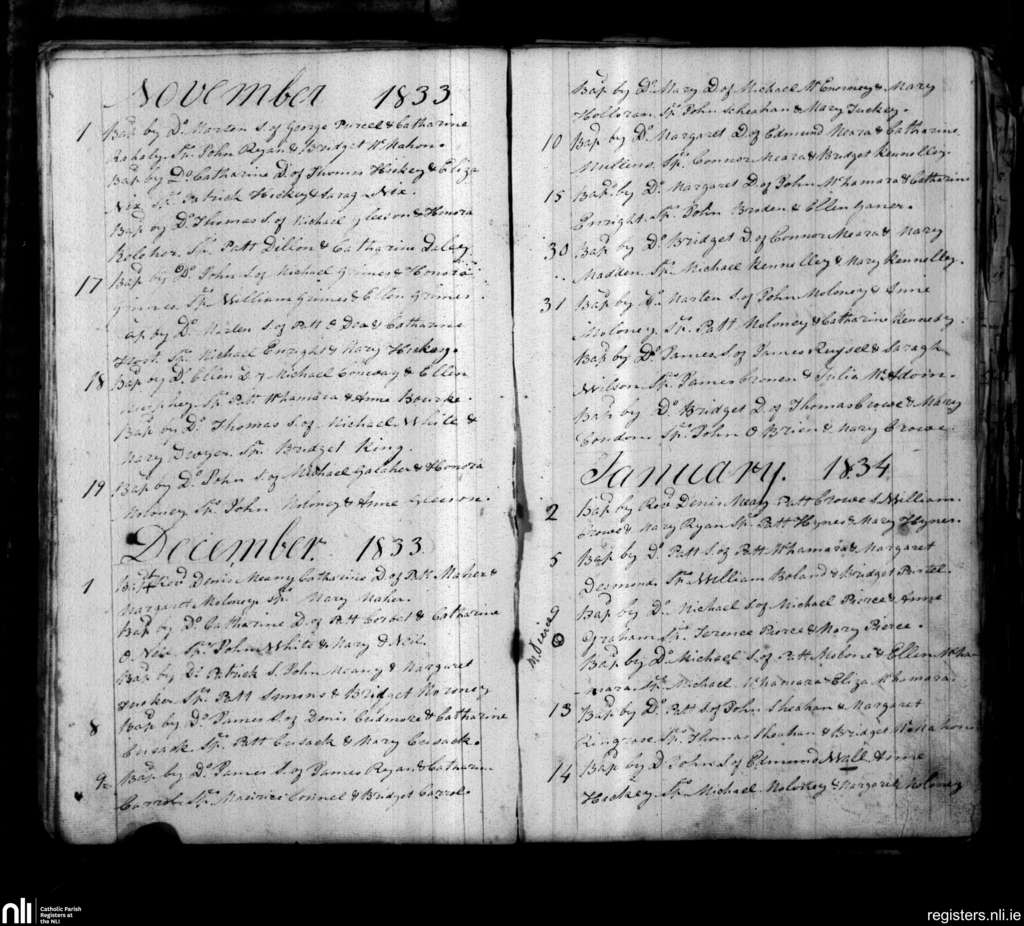 November 1833
1 Bap by Do Morten S. of George Purcel & Catharine
Sp. John Ryan & Bridget McMahon.
Bap by Do Catharine D. of Thomas Hickey & Eliza
Nix Sp. Patrick Hickey & Sarag Nix.
Bap by Do Thomas S. of Michael Gleeson & Honora
Kelcher. Sp. Patt Dillon & Catharine Daley
17 Bap by Do John S. of Michael Grimes & Honora
Sp. William Grimes & Ellen Grimes.
ap by Do S. of Patt O Dea & Catharine
Sp. Michael Enright & Mary Hickey.
18 Bap by Do Ellen D. of Michael Conway & Ellen
Murphey Sp. Patt McNamara & Anne Bourke.
Bap by Do Thomas S. of Michael White &
Mary Dwyer. Sp. Bridget King.
19 Bap by Do John S. of Michael Galaher & Honora
Moloney Sp. John Moloney & Anne Gleeson.
December 1833
1 Revd Denis Meany Catharine D. of Patt Maher &
Margaret Moloney Sp. Mary Maher.
Bap by Do Catharine D. of Patt Corbet & Catharine
O. Nix Sp. John White & Mary O Neil.
Bap by Do Patrick S. John Meany & Margaret
Sp. Patt Symms & Bridget Moroney
8 Bap by Do James S. of Denis & Catharine
Cusack Sp. Patt Cusack & Mary Cusack.
9 Bap by Do James S. of James Ryan & Catharine
Carrol. Sp. Maurice Connel & Bridget Carrol.
Bap by Do Mary D. of Michael & Mary
Holloran Sp. John Sheahan & Mary Tuckey.
10 Bap by Do Margret D. of Edmund Meara & Catharine
Mullins Sp. Connor Meara & Bridget Kennelley.
15 Bap by Do Margaret D. of John McNamara & Catharine
Enright Sp. John & Ellen
30 Bap by Do Bridget D. of Connor Meara & Mary
Madden. Sp. Michael Kennelley & Mary Kennelley.
31 Bap by Do Morten S. of John Moloney & Anne
Moloney. Sp. Patt Moloney & Catharine Kennedy.
Bap by Do James S. of James & Saragh
Wilson Sp. James Cronen & Julia
Bap by Do Bridget D. of Thomas Crowe & Mary
Condon Sp. John O Brien & Mary Crowe.
January. 1834
2 Bap by Revd Denis Meany Patt Crowe S. William
Crowe & Mary Ryan Sp. Patt Hynes & Mary Hynes.
5 Bap by Do Patt S. of Patt McNamara & Margaret
Desmond Sp. William Boland & Bridget Purtel.
M. Pierce
9 Bap by Do Michael S. of Michael Pierce & Anne
Graham Sp. Terence Pierce & Mary Pierce.
Bap by Do Michael S. of Patt Malone & Ellen McNa
mara Sp. Michael McNamara & Eliza McNamara.
13 Bap by Do Patt S. of John Sheahan & Margaret
Ringrose. Sp. Thomas Sheahan & Bridget McMahon
14 Bap by Do John S. of Edmund Wall & Anne
Hickey Sp. Michael Moloney & Margaret Moloney
nli
Catholic Parish
Registers at
the NLI
registers.nli.ie